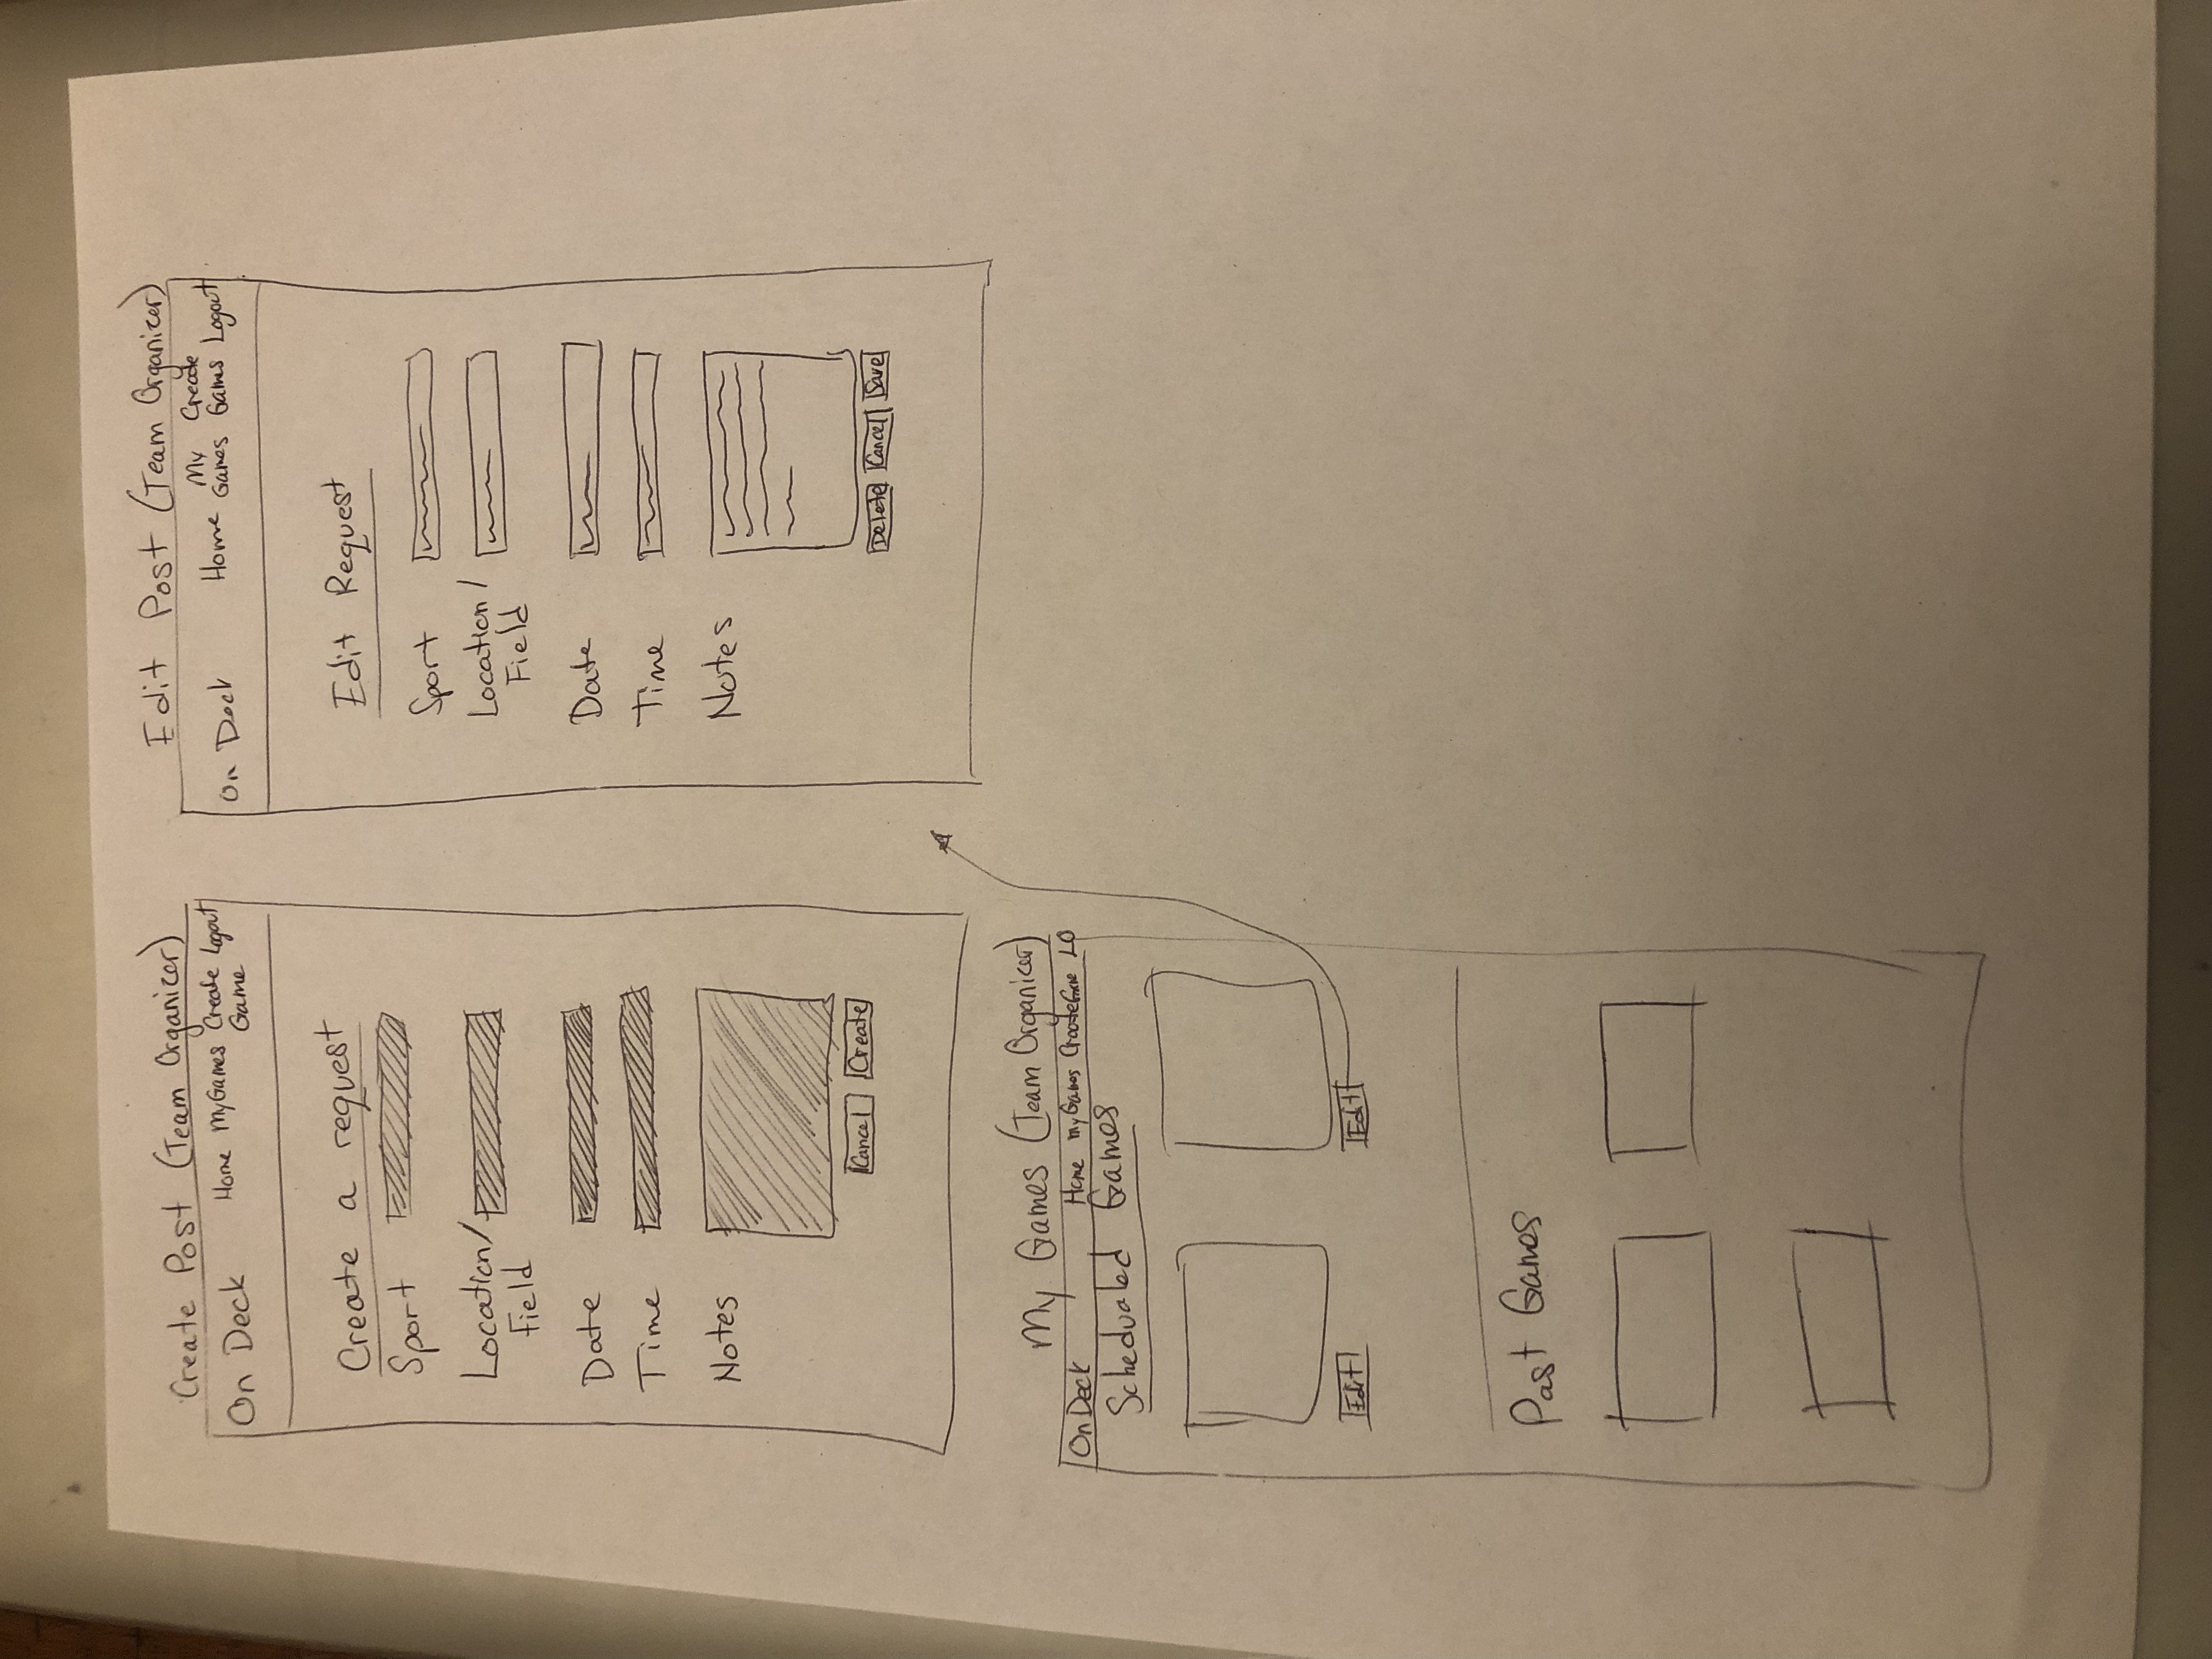 Create Post (Team Organizer)
On Deck Home MyGames Create Logout
Game
Create a request
Sport
Location/
Field
Date
Time
Notes
Cancel Create
Edit Post (Team Organizer)
On Deck Home My Games Create Games Logout
Edit Request
Sport
Location/
Field
Date
Time
Notes
Delete Cancel Save
My Games (Team Organizer)
On Deck Home MyGames CreateGame LO
Schedualed Games
Edit Edit
Past Games